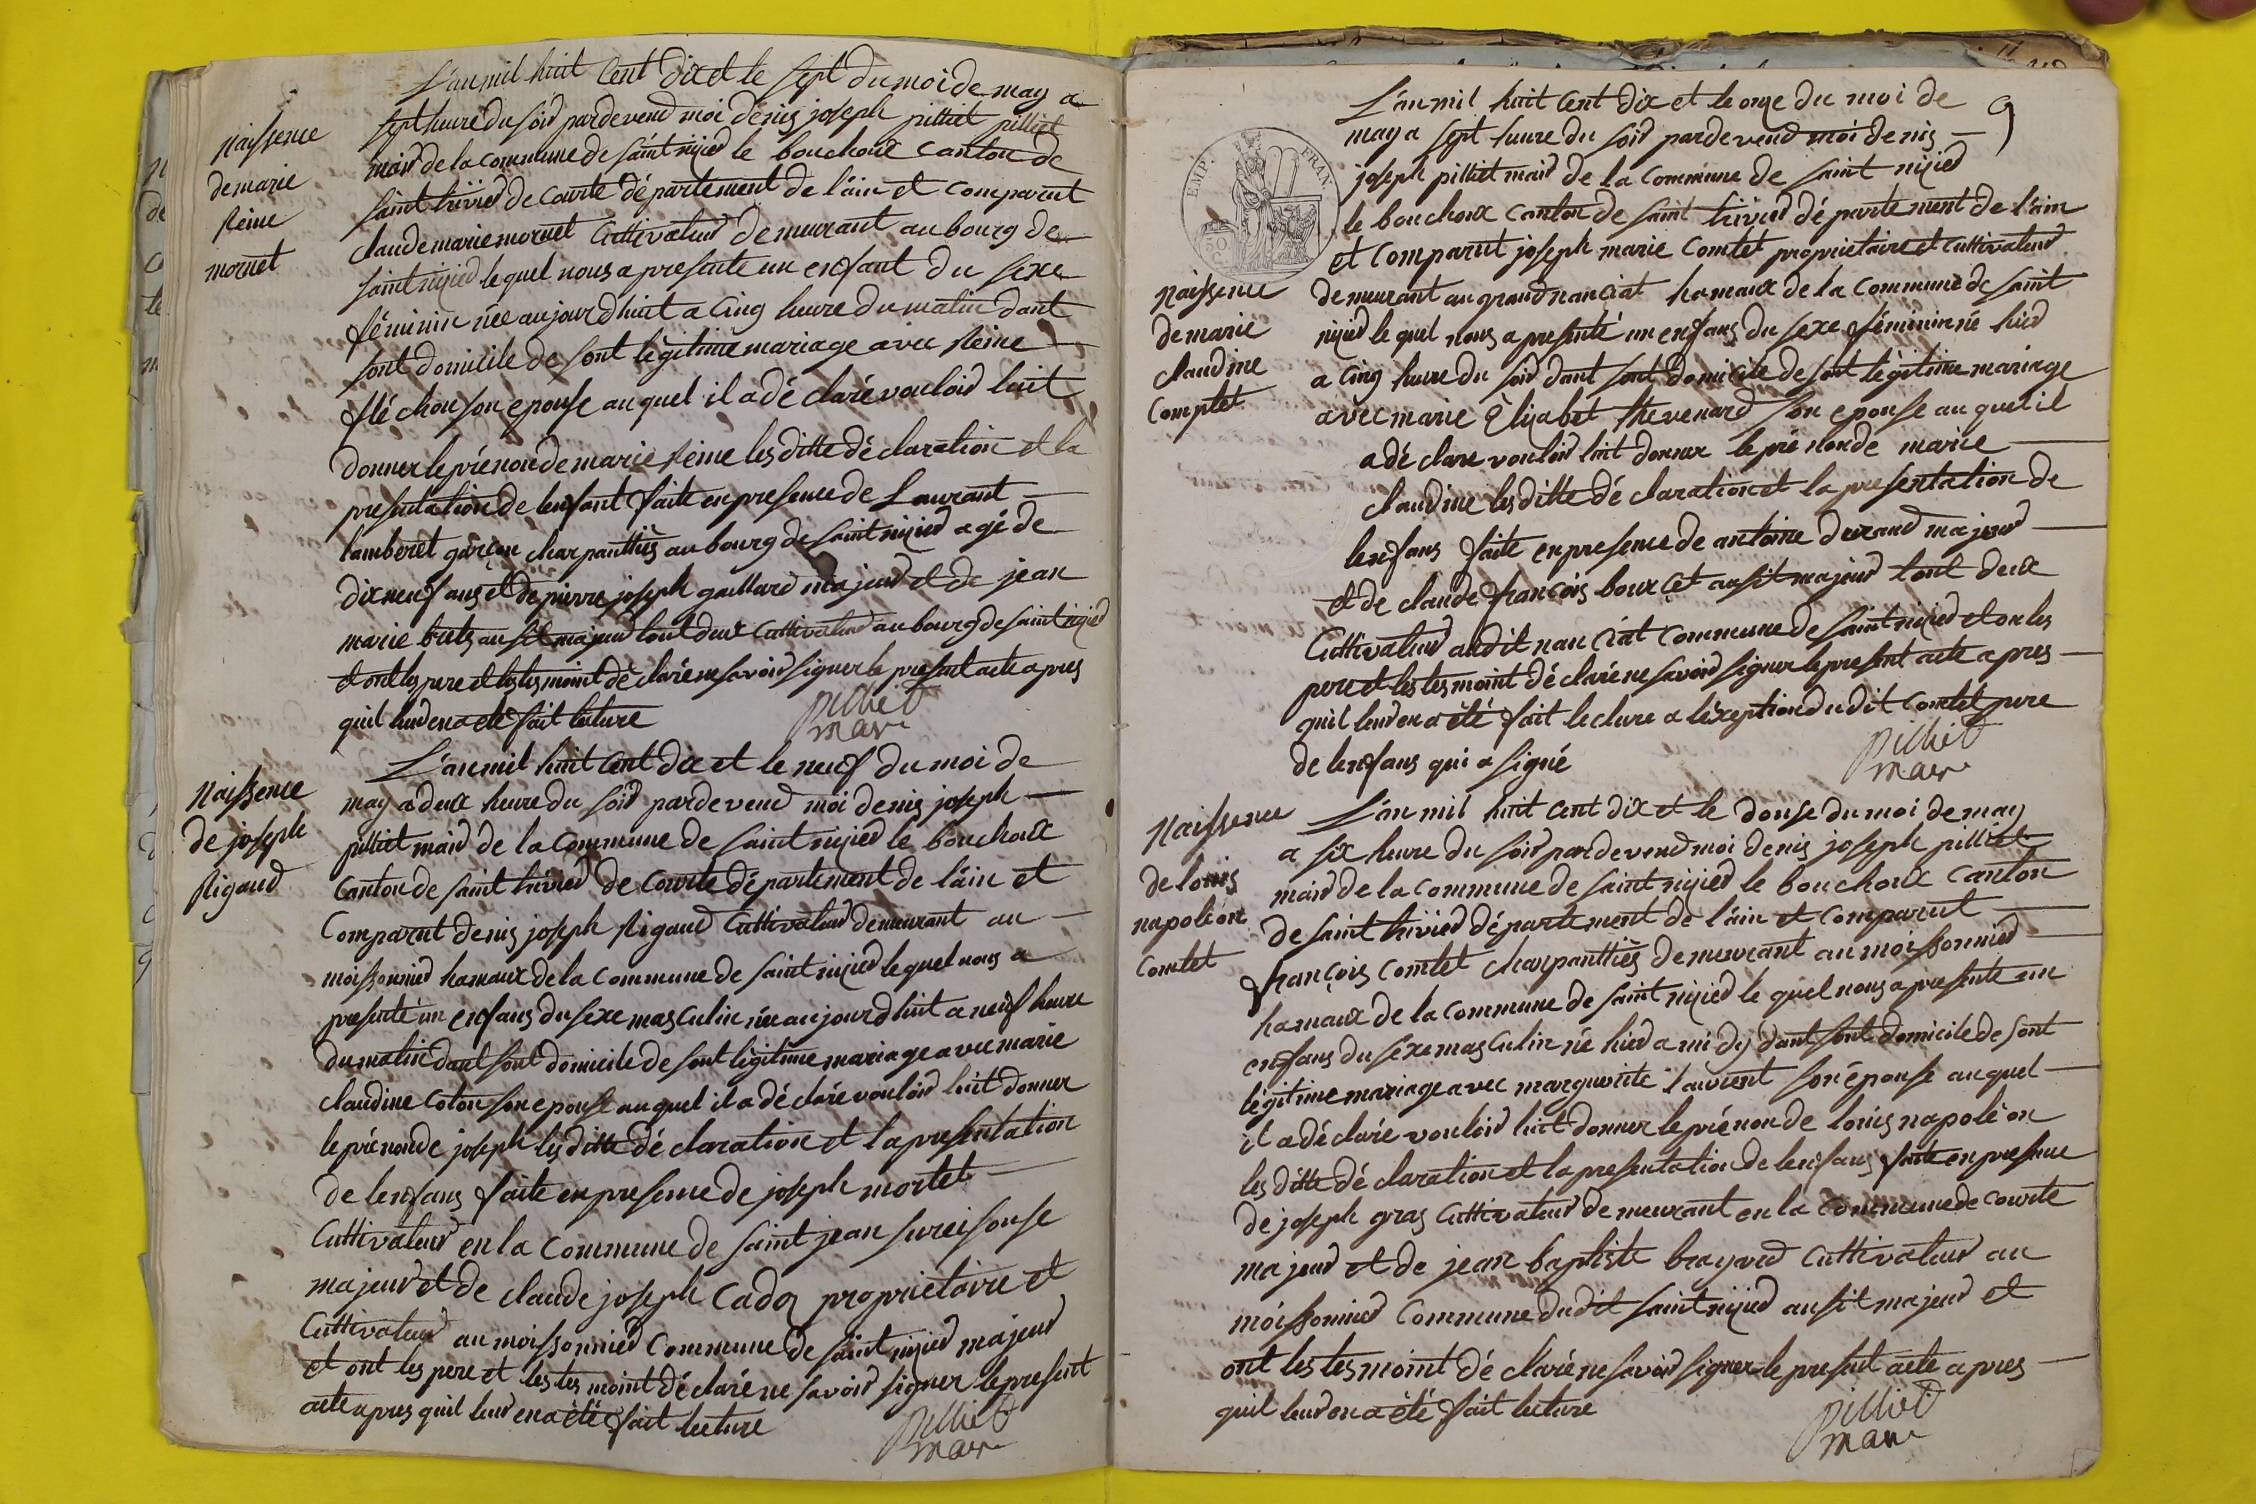 L'an mil huit cent dix et le sept du moi de may a
sept heure du soir pardevend moi denis joseph pilliet pilliet
mair de la commune de saint nizied le bouchoux canton de
saint trivied de courte département de l'ain et comparut
claude marie mornet cultivateur demeurant au bourg de
saint nizied lequel nous a presente un enfant du sexe
féminin née aujourdhuit a cinq heure du matin dant
sont domicile de sont légitime mariage avec reine
fléchon son epouse au quel il a déclaré vouloir luit
donner le prénon de marie reine les ditte déclaration et la
presentation de lenfant faite en presence de Laurant
lamberet garçon charpanthiés au bourg de saint nizied agé de
dix neuf ans et de pierre joseph gaillard majeur et de jean
marie buts ausit majeur tout deux cultivateur au bourg de saint nizied
et ont les pere et les tesmoint déclaré ne savoir signer le present acte apres
quil leur en a été fait lecture
pilliet
mair
naissence
de marie
reine
mornet
L'an mil huit cent dix et le neuf du moi de
may a deux heure du soir pardevend moi denis joseph
pilliet mair de la commune de saint nizied le bouchoux
canton de saint trivied de courte département de láin et
comparut denis joseph rigaud cultivateur demeurant au
moissonnied hamaux de la commune de saint nizied lequel nous a
presenté un enfans du sexe masculin née aujourdhuit a neuf heure
du matin dant sont domicile de sont légitime mariage avec marie
claudine coton son epouse au quel il a déclaré vouloir luit donner
le prénon de joseph les ditte déclaration et la presentation
de lenfans faite en presence de joseph mortel
cultivateur en la commune de saint jean sur eisouse
majeur et de claude joseph cadoz proprietaire et
cultivateur au moissonnied commune de saint nizied majeur
et ont les pere et les tesmoint déclaré ne savoir signer le present
acte apres quil leur en a été fait lecture
pilliet
mair
naissence
de joseph
rigaud
9
EMP. FRAN.
50
C.
L'an mil huit cent dix et le onze du moi de
may a sept heure du soir pardevend moi denis
joseph pilliet mair de la commune de saint nizied
le bouchoux canton de saint trivied département de l'ain
et comparut joseph marie comtet proprietaire et cultivateur
demeurant au grand nanciat hamaux de la commune de saint
nizied le quel nous a presenté un enfans du sexe féminin né hier
a cinq heure du soir dant sont domicile de sont légitime mariage
avec marie élizabet thevenard son epouse au quel il
a déclare vouloir luit donner le prénon de marie
claudine les ditte déclaration et la presentation de
lenfans faite en presence de antoine durand majeur
et de claude françois bourçet ausit majeur tout deux
cultivateur audit nanciat commune de saint nizied et on les
pere et les tesmoint déclaré ne savoir signer le present acte apres
quil leur en a été fait lecture a léxeption du dit comtet pere
de lenfans qui a signé
pilliet
mair
naissence
de marie
claudine
comptet
L'an mil huit cent dix et le douse du moi de may
a six heure du soir pardevend moi denis joseph pilliet
mair de la commune de saint nizied le bouchoux canton
de saint trivied département de láin et comparut
françois comtet charpanthiés demeurant au moissonnied
hamaux de la commune de saint nizied le quel nous a presente un
enfans du séxe masculin né hier a midy dant sont domicile de sont
légitime mariage avec margueritte laurent son épouse au quel
il a déclaré vouloir luit donner le prénon de louis napoléon
les ditte déclaration et la presentation de lenfans faite en presence
de joseph gras cultivateur demeurant en la commune de courte
majeur et de jean baptiste brayard cultivateur au
moissonnied commune dudit saint nizied ausit majeur et
ont les tesmoint déclaré ne savoir signer le present acte apres
quil leur en a été fait lecture
pilliet
mair
naissence
de louis
napoléon
comtet